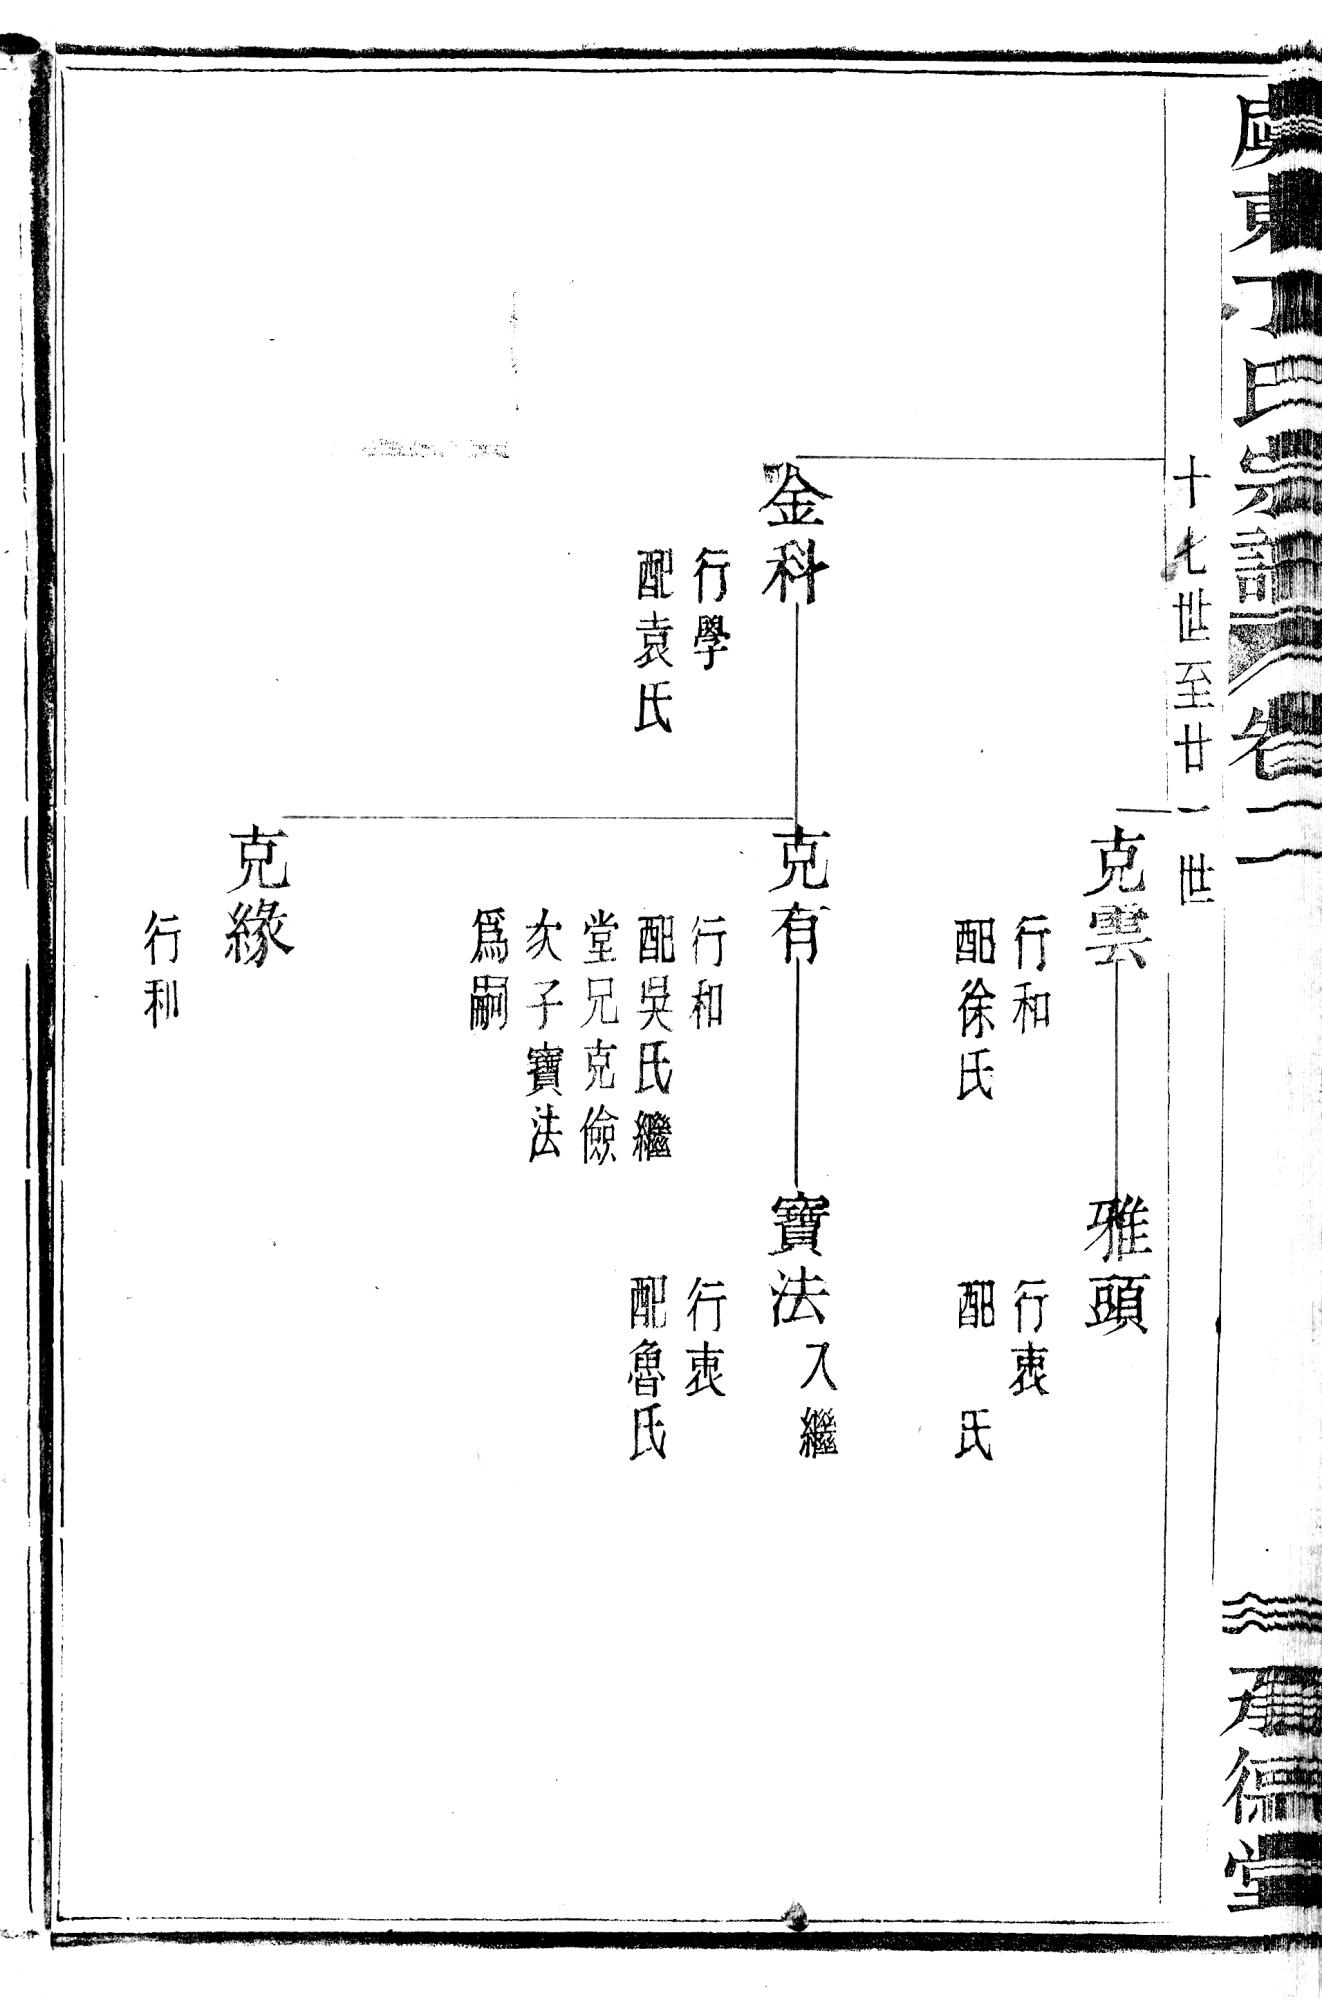 東丁氏宗譜 卷二
承德堂
十七世至廿一世
克雲
行和
配徐氏
雅頭
行衷
配 氏
金科
行學
配袁氏
克有
行和
配吳氏繼
堂兄克儉
次子寶法
爲嗣
寶法入繼
行衷
配魯氏
克緣
行和